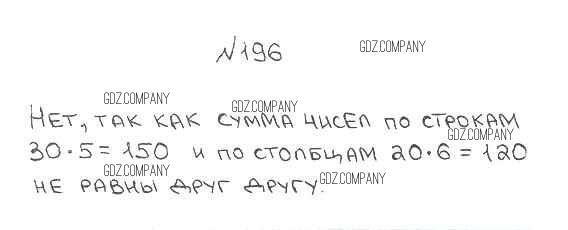 N196
GDZ.COMPANY
GDZ.COMPANY
GDZ.COMPANY
НЕТ, ТАК КАК СУММА ЧИСЕЛ ПО СТРОКАМ
GDZ.COMPANY
30·5=150 И ПО СТОЛБЦАМ 20·6=120
GDZ.COMPANY
GDZ.COMPANY
НЕ РАВНЫ ДРУГ ДРУГУ.